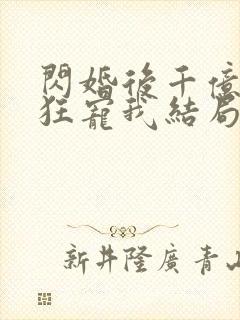 閃婚後千億
狂寵我結局
新井隆廣 青山